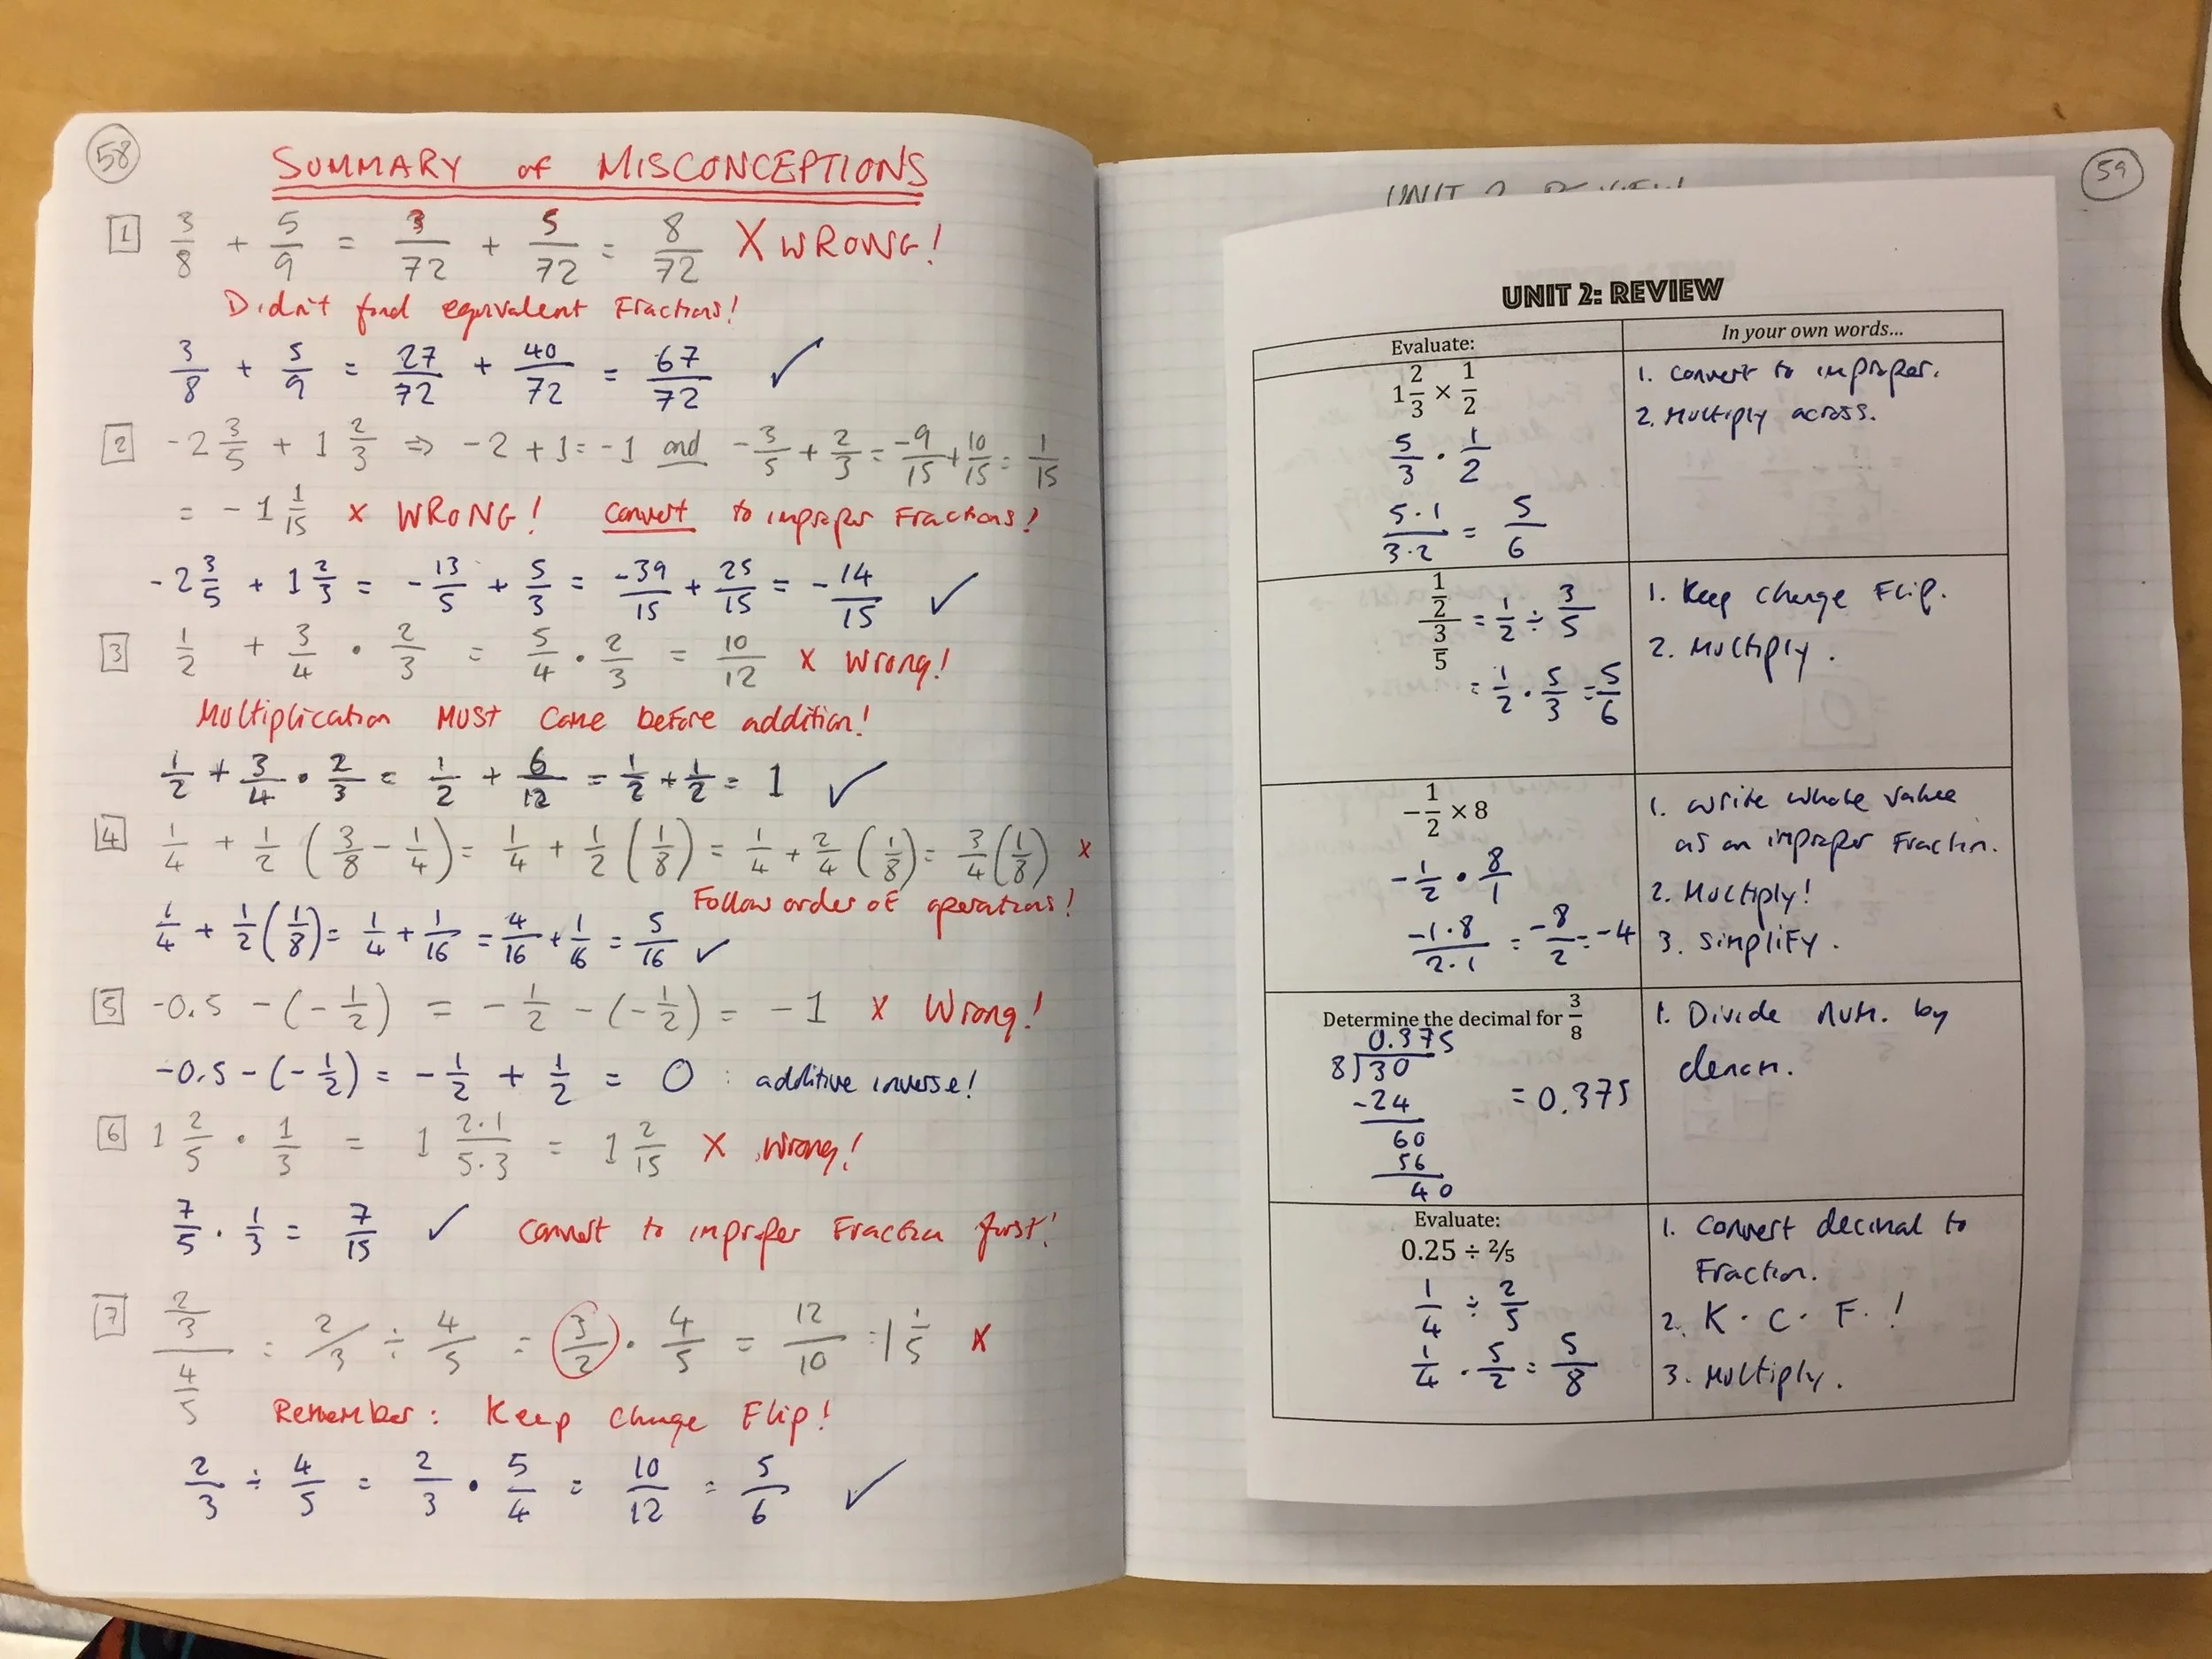 58
SUMMARY of MISCONCEPTIONS
1 3/8 + 5/9 = 3/72 + 5/72 = 8/72 X WRONG!
Didn't find equivalent Fractions!
3/8 + 5/9 = 27/72 + 40/72 = 67/72 ✓
2 -2 3/5 + 1 2/3 ⇒ -2 + 1 = -1 and -3/5 + 2/3 = -9/15 + 10/15 = 1/15
= -1 1/15 x WRONG! convert to improper Fractions!
-2 3/5 + 1 2/3 = -13/5 + 5/3 = -39/15 + 25/15 = -14/15 ✓
3 1/2 + 3/4 · 2/3 = 5/4 · 2/3 = 10/12 x Wrong!
Multiplication MUST come before addition!
1/2 + 3/4 · 2/3 = 1/2 + 6/12 = 1/2 + 1/2 = 1 ✓
4 1/4 + 1/2 (3/8 - 1/4) = 1/4 + 1/2 (1/8) = 1/4 + 2/4 (1/8) = 3/4 (1/8) x
Follow order of operations!
1/4 + 1/2 (1/8) = 1/4 + 1/16 = 4/16 + 1/16 = 5/16 ✓
5 -0.5 - (-1/2) = -1/2 - (-1/2) = -1 x Wrong!
-0.5 - (-1/2) = -1/2 + 1/2 = 0 : additive inverse!
6 1 2/5 · 1/3 = 1 2·1/5·3 = 1 2/15 X Wrong!
7/5 · 1/3 = 7/15 ✓ convert to improper Fraction first!
7 2/3 / 4/5 = 2/3 ÷ 4/5 = 3/2 · 4/5 = 12/10 = 1 1/5 x
Remember: Keep Change Flip!
2/3 ÷ 4/5 = 2/3 · 5/4 = 10/12 = 5/6 ✓
59
UNIT 2 REVIEW
UNIT 2: REVIEW
Evaluate:
In your own words...
1 2/3 × 1/2
5/3 · 1/2
5·1/3·2 = 5/6
1. convert to improper.
2. Multiply across.
1/2 / 3/5 = 1/2 ÷ 3/5
= 1/2 · 5/3 = 5/6
1. Keep Change Flip.
2. Multiply.
-1/2 × 8
-1/2 · 8/1
-1·8/2·1 = -8/2 = -4
1. write whole value
as an improper Fraction.
2. Multiply!
3. simplify.
Determine the decimal for 3/8
0.375
8)30
-24
60
56
40
= 0.375
1. Divide num. by
denom.
Evaluate:
0.25 ÷ 2/5
1/4 ÷ 2/5
1/4 · 5/2 = 5/8
1. convert decimal to
Fraction.
2. K. C. F. !
3. Multiply.